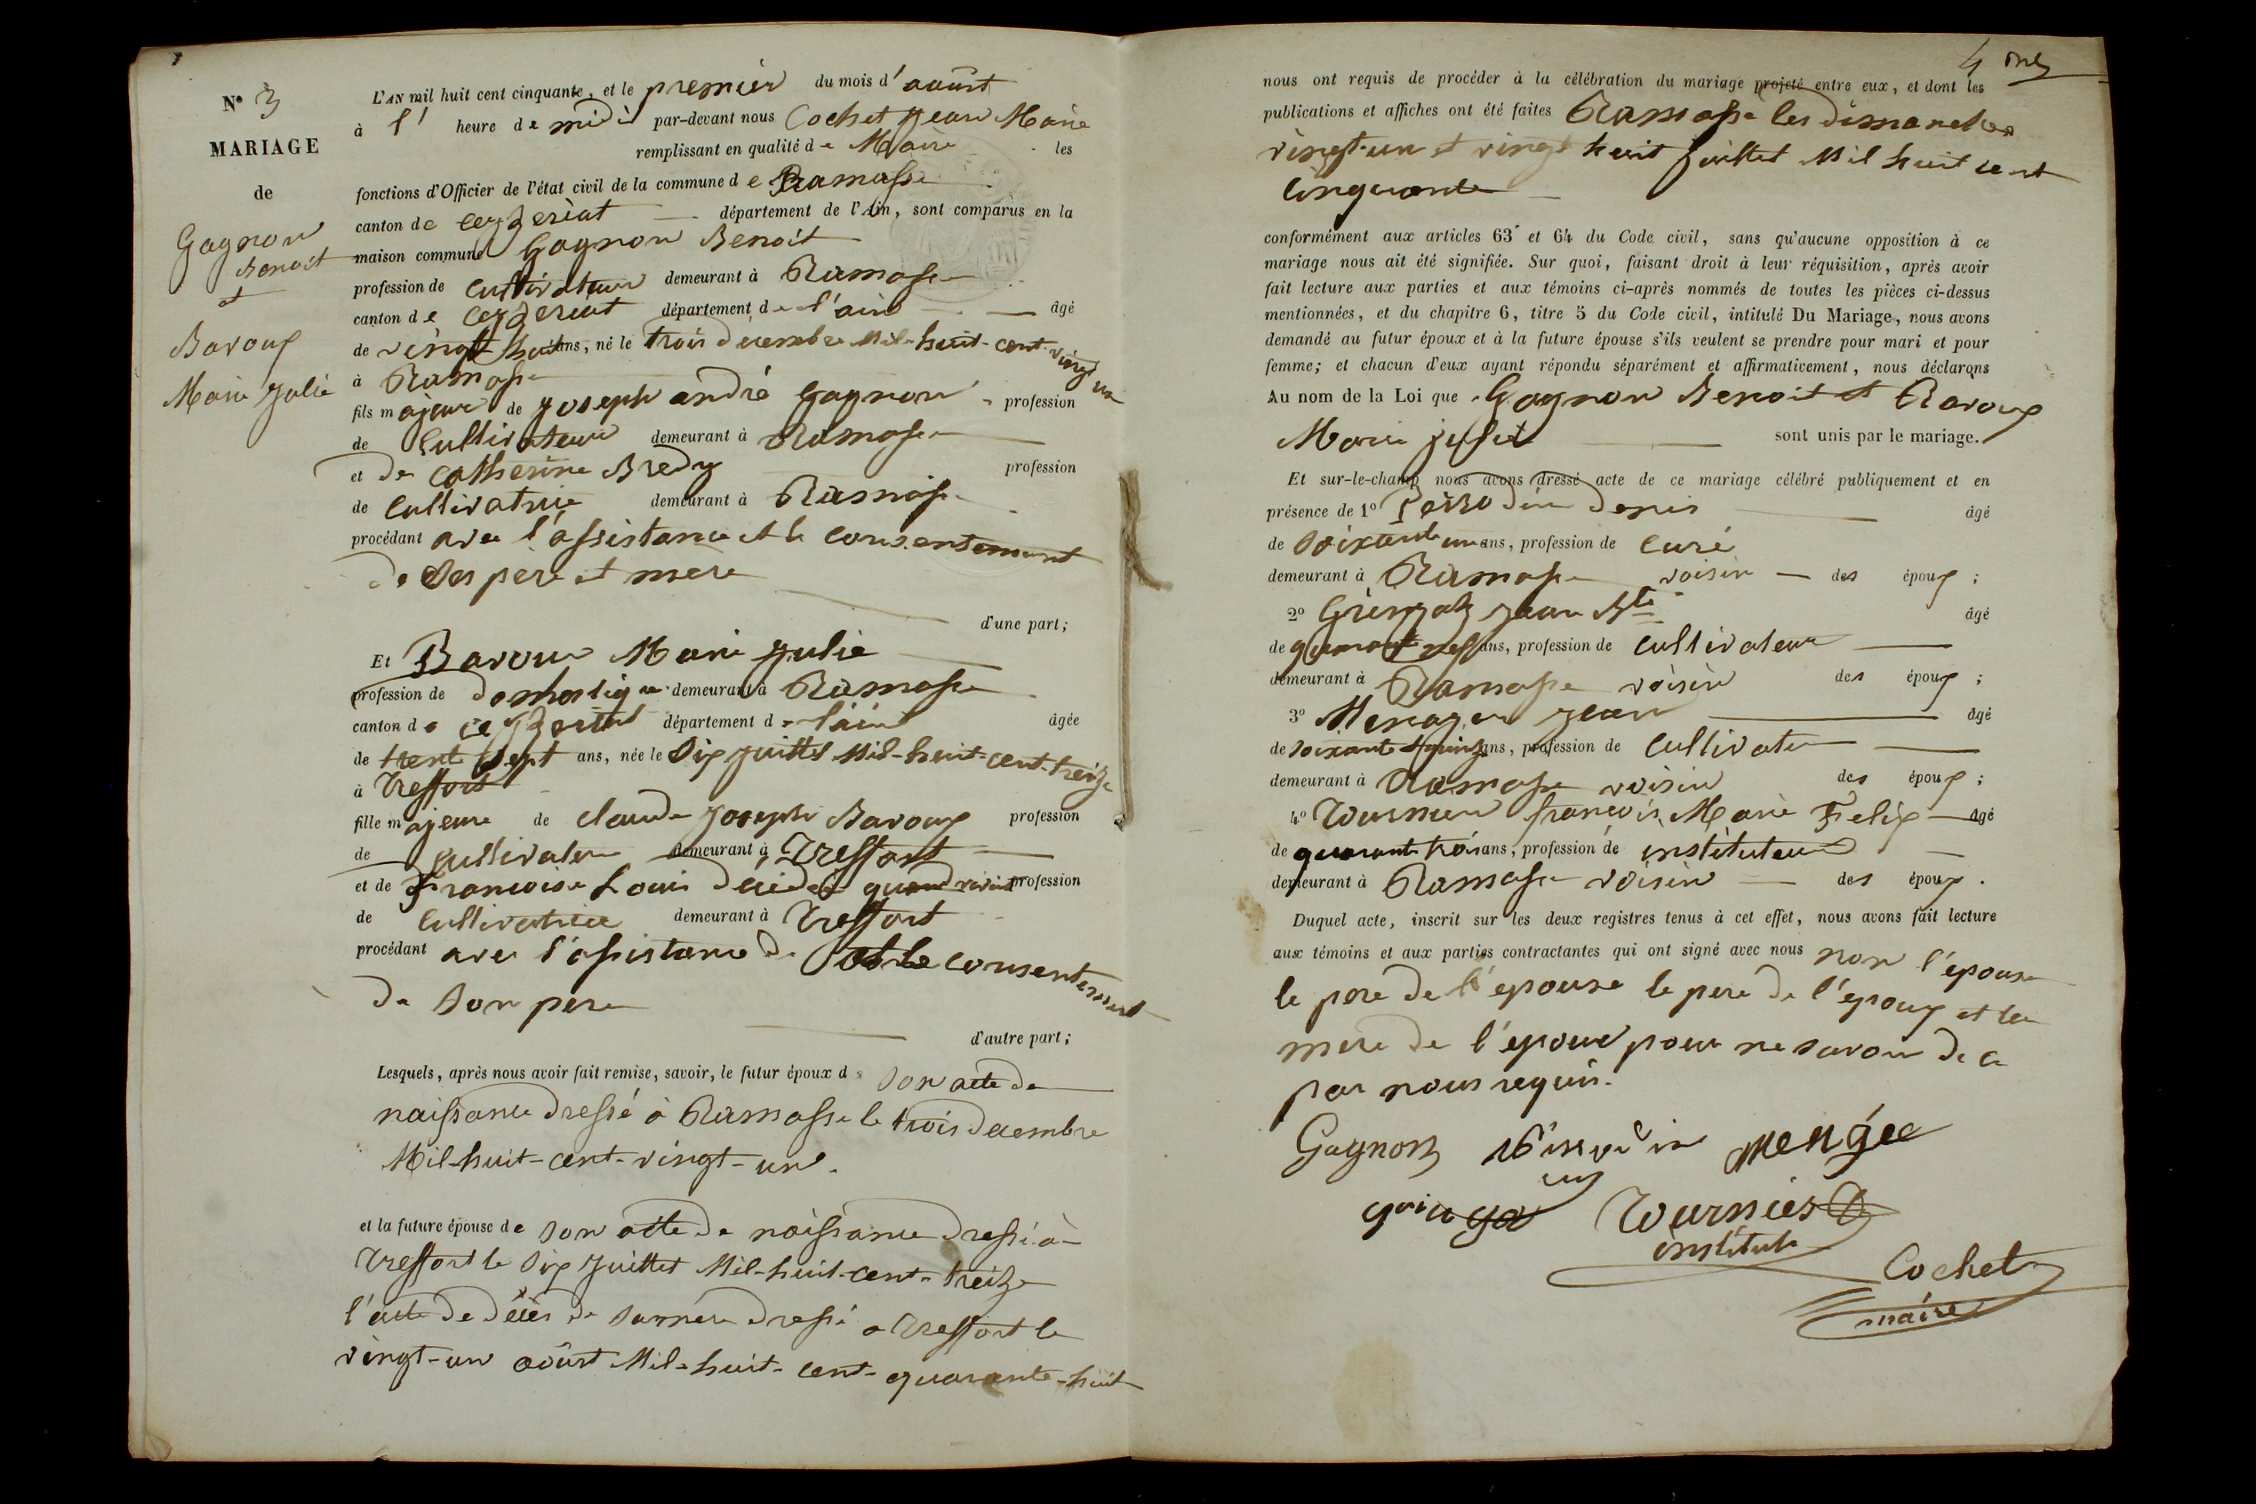 N° 3
MARIAGE
de
Gagnon
Benoit
et
Baroux
Marie Julie
L'AN mil huit cent cinquante, et le premier du mois d'août
à l' heure de midi par-devant nous Cochet Jean Marie
remplissant en qualité de Maire les
fonctions d'Officier de l'état civil de la commune de Ramasse
canton de ceyzeriat département de l'Ain, sont comparus en la
maison commune Gagnon Benoit
profession de cultivateur demeurant à Ramasse
canton de ceyzeriat département de l'ain âgé
de vingt huit ans, né le trois decembre Mil-huit-cent-vingt un
à Ramasse
fils majeur de joseph andré gagnon profession
de Cultivateur demeurant à Ramasse
et de catherine Bredy profession
de Cultivatrice demeurant à Ramasse
procédant avec l'assistance et le consentement
de ses pere et mere
d'une part;
Et Baroux Marie julie
profession de domestique demeurant à Ramasse
canton de ceyzeriat département de l'ain âgée
de trente sept ans, née le dix juillet Mil-huit-cent-treize
à Treffort
fille majeure de claude joseph Baroux profession
de cultivateur demeurant à Treffort
et de francoise Louis décidée quand vivait profession
de Cultivatrice demeurant à Treffort
procédant avec l'assistance de et le consentement
de son pere
d'autre part;
Lesquels, après nous avoir fait remise, savoir, le futur époux de son acte de
naissance dressé à Ramasse le trois decembre
Mil-huit-cent-vingt-un.
et la future épouse de son acte de naissance dressé à
Treffort le dix juillet Mil-huit-cent-treize
l'acte de décès de sa mere dressé a Treffort le
vingt-un août Mil-huit-cent-quarante-huit
4
nous ont requis de procéder à la célébration du mariage projeté entre eux, et dont les
publications et affiches ont été faites Ramasse les dimanches
vingt-un et vingt huit juillet Mil huit cent
cinquante
conformément aux articles 63 et 64 du Code civil, sans qu'aucune opposition à ce
mariage nous ait été signifiée. Sur quoi, faisant droit à leur réquisition, après avoir
fait lecture aux parties et aux témoins ci-après nommés de toutes les pièces ci-dessus
mentionnées, et du chapitre 6, titre 5 du Code civil, intitulé Du Mariage, nous avons
demandé au futur époux et à la future épouse s'ils veulent se prendre pour mari et pour
femme; et chacun d'eux ayant répondu séparément et affirmativement, nous déclarons
Au nom de la Loi que Gagnon Benoit et Baroux
Marie julie sont unis par le mariage.
Et sur-le-champ nous avons dressé acte de ce mariage célébré publiquement et en
présence de 1° denis âgé
de soixante un ans, profession de curé
demeurant à Ramasse voisin des époux;
2° Gringoz Jean Bte âgé
de quarante neuf ans, profession de cultivateur
demeurant à Ramasse voisin des époux;
3° jean âgé
de soixante quinze ans, profession de cultivateur
demeurant à Ramasse voisin des époux;
4° Tournier francois Marie Felix âgé
de quarante trois ans, profession de instituteur
demeurant à Ramasse voisin des époux.
Duquel acte, inscrit sur les deux registres tenus à cet effet, nous avons fait lecture
aux témoins et aux parties contractantes qui ont signé avec nous non l'epouse
le pere de l'epouse le pere de l'epoux et la
mere de l'epoux pour ne savoir de ce
par nous requis.
Gagnon
Tournier
institut
Cochet
maire